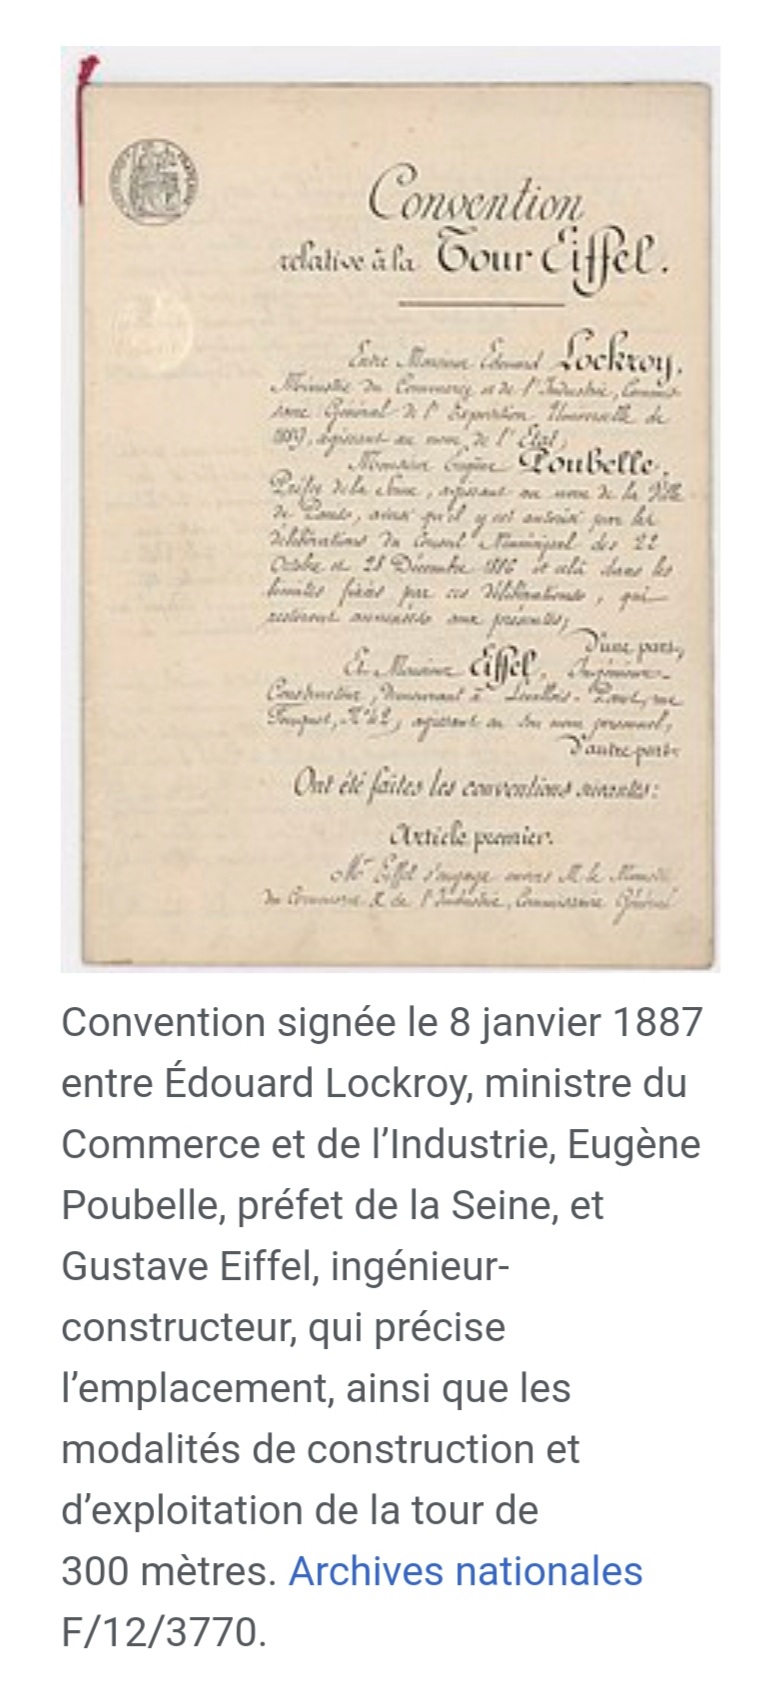 Convention
relative à la Tour Eiffel.
Entre Monsieur Edouard Lockroy,
Ministre du Commerce et de l'Industrie, Commis-
saire Général de l'Exposition Universelle de
1889, agissant au nom de l'Etat,
Monsieur Eugène Poubelle,
Préfet de la Seine, agissant au nom de la Ville
de Paris, ainsi qu'il y est autorisé par les
délibérations du Conseil Municipal des 22
Octobre et 28 Décembre 1886 et cela dans les
limites fixées par ces délibérations, qui
resteront annexées aux présentes,
D'une part,
Et Monsieur Eiffel, Ingénieur-
Constructeur, demeurant à Levallois-Perret, rue
Fouquet, N° 42, agissant en son nom personnel,
D'autre part.
Ont été faites les conventions suivantes:
Article premier.
Mr Eiffel s'engage envers M. le Ministre
du Commerce & de l'Industrie, Commissaire Général
Convention signée le 8 janvier 1887
entre Édouard Lockroy, ministre du
Commerce et de l’Industrie, Eugène
Poubelle, préfet de la Seine, et
Gustave Eiffel, ingénieur-
constructeur, qui précise
l’emplacement, ainsi que les
modalités de construction et
d’exploitation de la tour de
300 mètres. Archives nationales
F/12/3770.